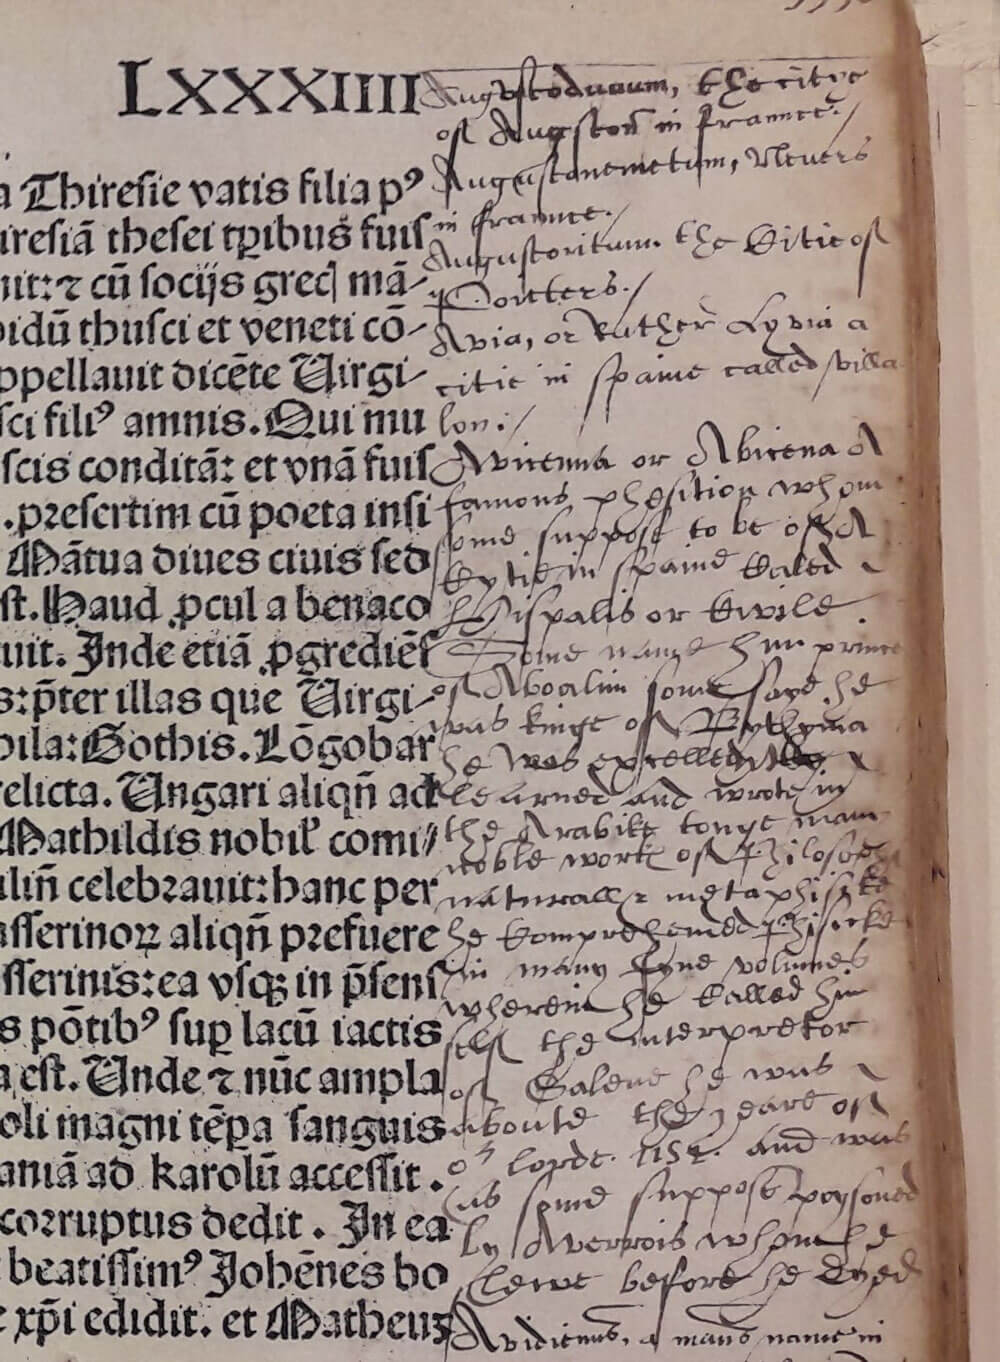 LXXXIIII
a Thiresie vatis filia pꝰ
iresiã thesei tꝑibus fuiſ
nit: ⁊ cũ socijs greci mã-
pidũ thusci et veneti cõ-
ppellauit dicẽte Uirgi-
sci filiꝰ amnis. Qui mu
scis conditã: et vnã fuiſ
. presertim cũ poeta insi
Mãtua diues ciuis sed
st. Haud ꝓcul a benaco
uit. Inde etiã ꝓgrediẽſ
s: p̃ter illas que Uirgi-
pila: Gothis. Lõgobar
relicta. Ungari aliqñ ad
Mathildis nobil' comi/
uliñ celebrauit: hanc per
asserinoꝝ aliqñ prefuere
sserinis: ea vsqꝫ in p̃senſ
s põtibꝰ suꝑ lacũ iactis
a est. Unde ⁊ nũc ampla
oli magni tẽꝑa sanguis
aniã ad karolũ accessit.
corruptus dedit. In ea
beatissimꝰ Johẽnes bo
xp̃i edidit. et Matheus
Augustodunum, the citye
of Augston in france./
Augustonemetum, Nevers
in france./
Augustoritum. the Citie of
Poicters./
Avia, or Rather Lyvia a
citie in spaine called villa
lon./
Avicenna or Abicena A
famous phesition whom
some suppose to be of A
Cytie in spaine Caled
Hispalis or Civile
Some name him prince
of Aboalim some saye he
was kinge of Bythynia
he was excellently
learned and wrote in
the Arabike tonge many
noble worke of Philosophy
naturall & metaphisyke
he comprehended Phisicke
in many fyne volumes
wherein he Called him
self the interpretor
of Galene he was
aboute the yeare of
oʳ lorde. and was
(as some suppose) poysoned
by Averrois whom he
slewe before he dyed
Avidienus, a mans name in